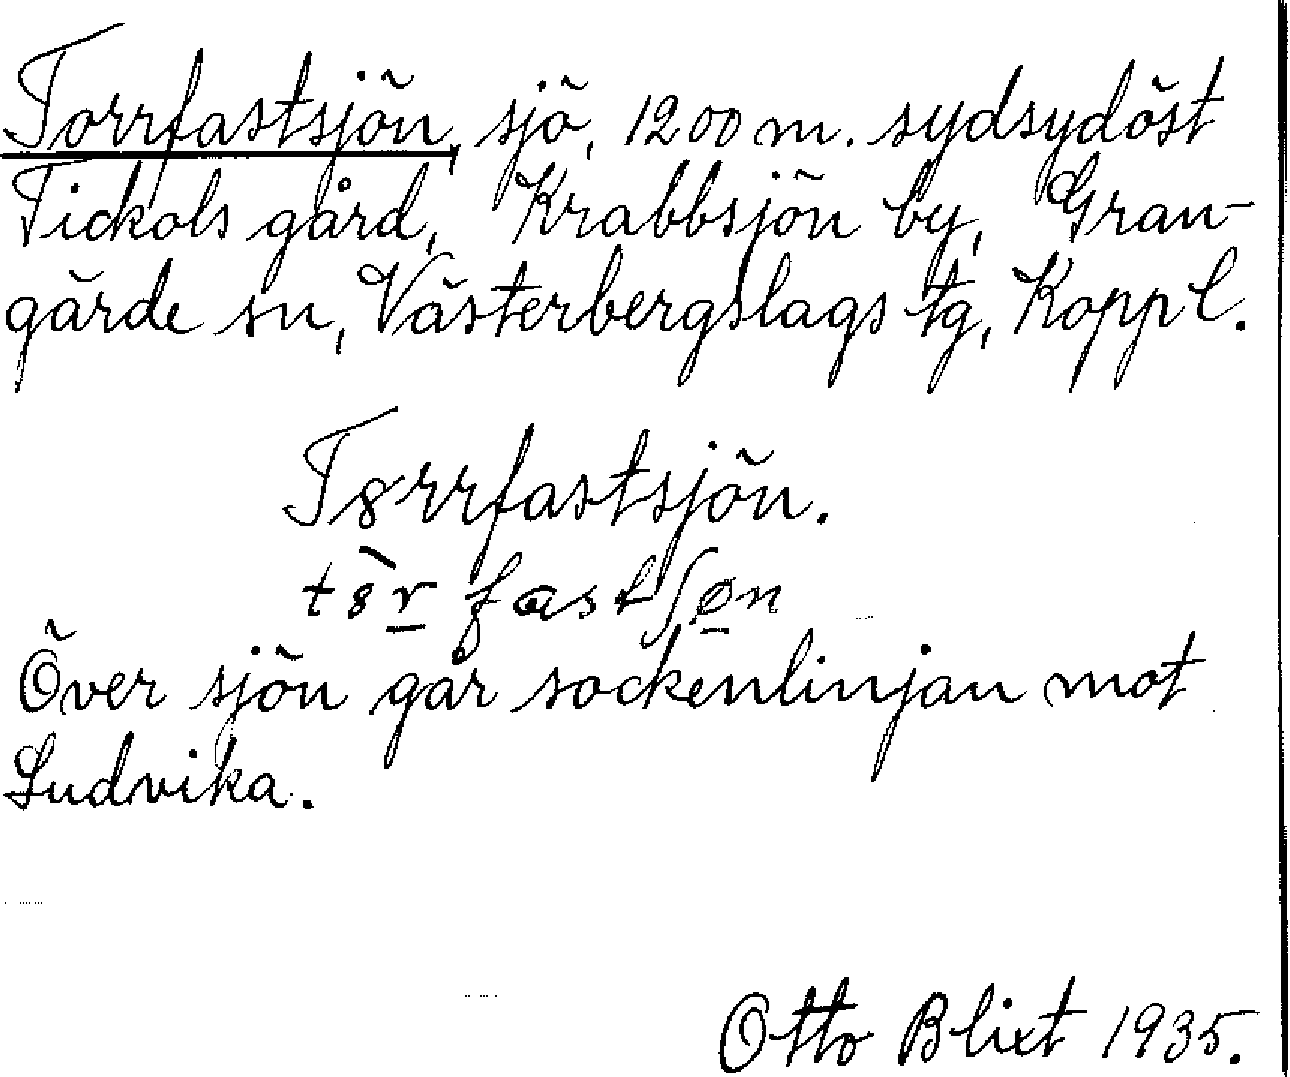 Torrfastsjön, sjö, 1200 m. sydsydöst
Tickols gård, Krabbsjön by, Gran-
gärde sn, Västerbergslags tg, Koppl.
T8rrfastsjön.
t8̀r̲ fastʃø̲n
Över sjön går sockenlinjan mot
Ludvika.
Otto Blixt 1935.